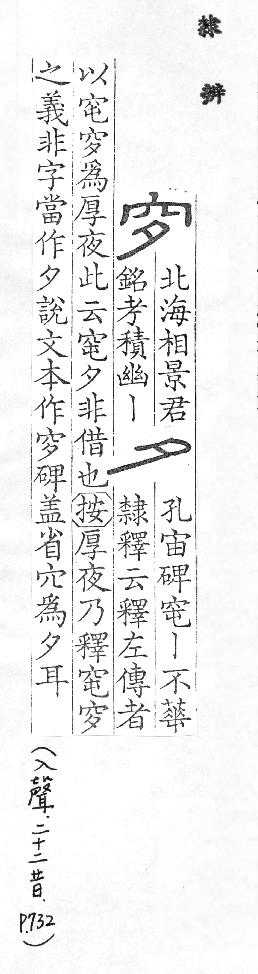 隸辨
穸
北海相景君
銘考積幽丨
夕
孔宙碑窀丨不華
隸釋云釋左傳者
以窀穸爲厚夜此云窀夕非借也按厚夜乃釋窀穸
之義非字當作夕說文本作穸碑蓋省穴爲夕耳
(入聲.二十二昔. P.732)